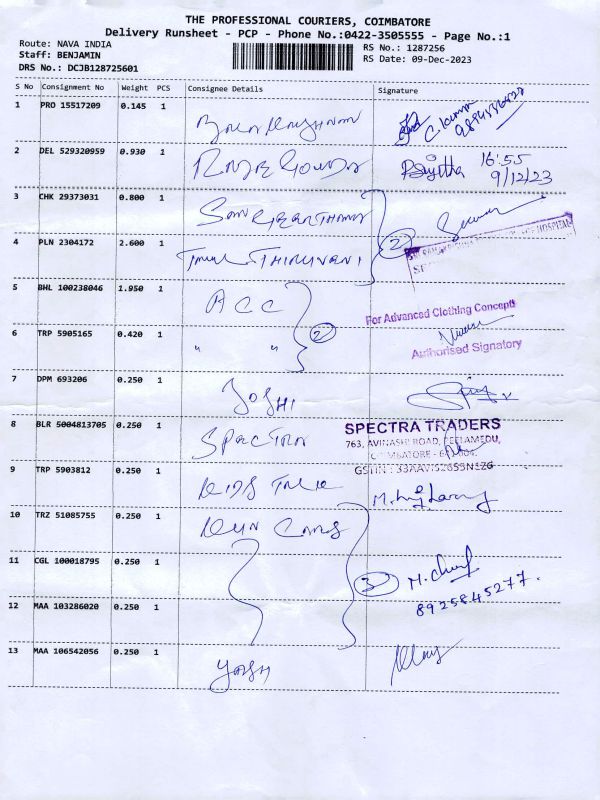 THE PROFESSIONAL COURIERS, COIMBATORE
Delivery Runsheet - PCP - Phone No.:0422-3505555 - Page No.:1
Route: NAVA INDIA
RS No.: 1287256
Staff: BENJAMIN
RS Date: 09-Dec-2023
DRS No.: DCJB128725601
S No Consignment No Weight PCS Consignee Details Signature
1 PRO 15517209 0.145 1
2 DEL 529320959 0.930 1 16:55
9/12/23
3 CHK 29373031 0.800 1
4 PLN 2304172 2.600 1 THIRUVANI 2
5 BHL 100238046 1.950 1 ACC
For Advanced Clothing Concepts
6 TRP 5905165 0.420 1 " " 2
Authorised Signatory
7 DPM 693206 0.250 1 JOSHI
8 BLR 5004813705 0.250 1 SPECTRA
SPECTRA TRADERS
763, AVINASHI ROAD, PEELAMEDU,
COIMBATORE
9 TRP 5903812 0.250 1
10 TRZ 51085755 0.250 1 CARS
11 CGL 100018795 0.250 1 3
8925845277.
12 MAA 103286020 0.250 1
13 MAA 106542056 0.250 1 YASH